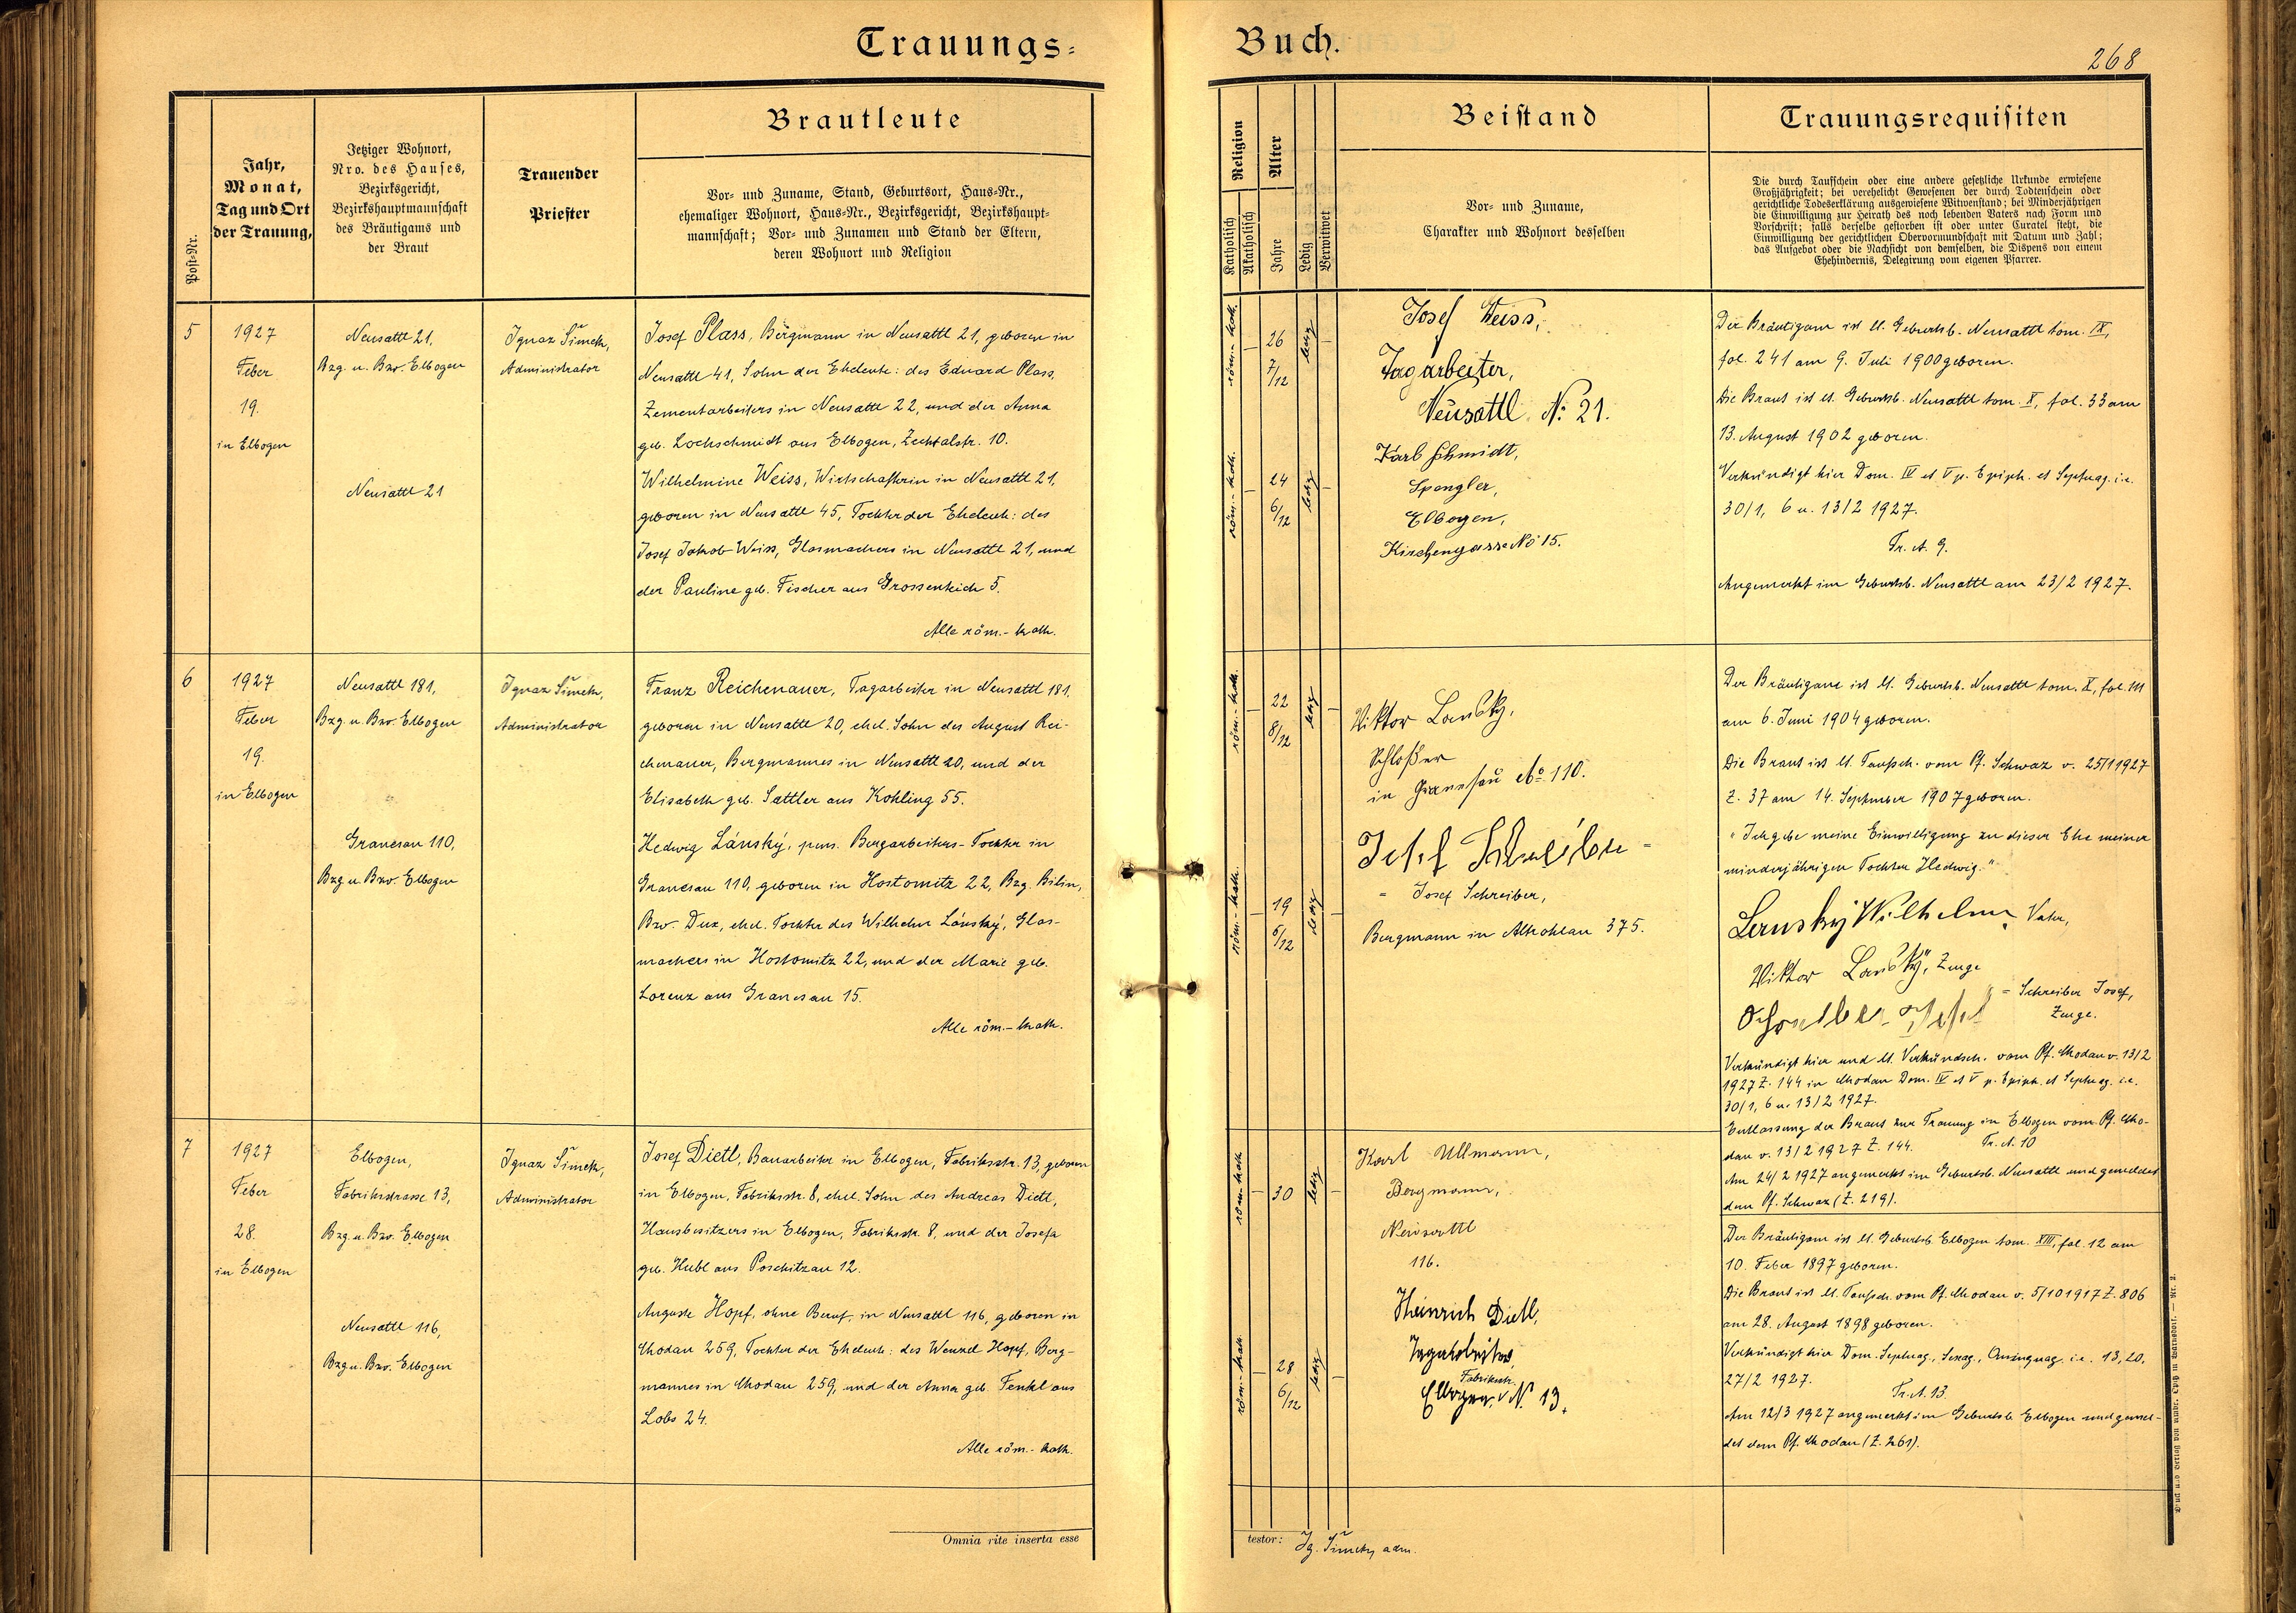 Trauungs-
Buch.
268
Post-Nr.
Jahr,
Monat,
Tag und Ort
der Trauung,
Jetziger Wohnort,
Nro. des Hauses,
Bezirksgericht,
Bezirkshauptmannschaft
des Bräutigams und
der Braut
Trauender
Priester
Brautleute
Vor- und Zuname, Stand, Geburtsort, Haus-Nr.,
ehemaliger Wohnort, Haus-Nr., Bezirksgericht, Bezirkshaupt-
mannschaft; Vor- und Zunamen und Stand der Eltern,
deren Wohnort und Religion
Religion
Katholisch
Akatholisch
Alter
Jahre
Ledig
Verwitwet
Beistand
Vor- und Zuname,
Charakter und Wohnort desselben
Trauungsrequisiten
Die durch Taufschein oder eine andere gesetzliche Urkunde erwiesene
Großjährigkeit; bei verehelicht Gewesenen der durch Todtenschein oder
gerichtliche Todeserklärung ausgewiesene Witwenstand; bei Minderjährigen
die Einwilligung zur Heirath des noch lebenden Vaters nach Form und
Vorschrift; falls derselbe gestorben ist oder unter Curatel steht, die
Einwilligung der gerichtlichen Obervormundschaft mit Datum und Zahl;
das Aufgebot oder die Nachsicht von demselben, die Dispens von einem
Ehehindernis, Delegirung vom eigenen Pfarrer.
5
1927
Feber
19.
in Elbogen
Neusattl 21,
Bzg. u. Bzv. Elbogen
Neusattl 21
Ignaz Šimek,
Administrator
Josef Plass, Bergmann in Neusattl 21, geboren in
Neusattl 41, Sohn der Eheleute: des Eduard Plass,
Zementarbeiters in Neusattl 22, und der Anna
geb. Lochschmidt aus Elbogen, Zechtalstr. 10.
Wilhelmine Weiss, Wirtschafterin in Neusattl 21,
geboren in Neusattl 45, Tochter der Eheleute: des
Josef Jakob Weiss, Glasmachers in Neusattl 21, und
der Pauline geb. Fischer aus Grossenteich 5.
Alle röm.-kath.
röm.-kath.
26
7/12
ledig
röm.-kath.
24
6/12
ledig
Josef Weiss,
Tagarbeiter,
Neusattl No: 21.
Karl Schmidt,
Spengler,
Elbogen,
Kirchengasse No 15.
Der Bräutigam ist lt. Geburtsb. Neusattl tom. IX,
fol. 241 am 9. Juli 1900 geboren.
Die Braut ist lt. Geburtsb. Neusattl tom. X, fol. 33 am
13. August 1902 geboren.
Verkündigt hier Dom. IV et V p. Epiph. et Septuag. i.e.
30/1, 6 u. 13/2 1927.
Tr. A. 9.
Angemerkt im Geburtsb. Neusattl am 23/2 1927.
6
1927
Feber
19.
in Elbogen
Neusattl 181,
Bzg u. Bzv. Elbogen
Granesau 110,
Bzg u. Bzv. Elbogen
Ignaz Šimek,
Administrator
Franz Reichenauer, Tagarbeiter in Neusattl 181,
geboren in Neusattl 20, ehel. Sohn des August Rei-
chenauer, Bergmannes in Neusattl 20, und der
Elisabeth geb. Sattler aus Kohling 55.
Hedwig Lánský, pens. Bergarbeiters-Tochter in
Granesau 110, geboren in Hostomitz 22, Bzg. Bilin,
Bzv. Dux, ehel. Tochter des Wilhelm Lánský, Glas-
machers in Hostomitz 22, und der Marie geb.
Lorenz aus Granesau 15.
Alle röm.-kath.
röm.-kath.
22
8/12
ledig
röm.-kath.
19
5/12
ledig
Viktor Lanský,
Schlosser
in Granesau No 110.
Josef Schreiber =
= Josef Schreiber,
Bergmann in Altrohlau 375.
Der Bräutigam ist lt. Geburtsb. Neusattl tom. X, fol. 111
am 6. Juni 1904 geboren.
Die Braut ist lt. Taufsch. vom Pf. Schwaz v. 25/1 1927
Z. 37 am 14. September 1907 geboren.
"Ich gebe meine Einwilligung zu dieser Ehe meiner
minderjährigen Tochter Hedwig."
Lanský Wilhelm Vater,
Viktor Lanský, Zeuge
Schreiber Josef = Schreiber Josef,
Zeuge.
Verkündigt hier und lt. Verkündsch. vom Pf. Chodau v. 13/2
1927 Z. 144 in Chodau Dom. IV et V p. Epiph. et Septuag. i.e.
30/1, 6 u. 13/2 1927.
Entlassung der Braut zur Trauung in Elbogen vom Pf. Cho-
dau v. 13/2 1927 Z. 144. Tr. A. 10
Am 24/2 1927 angemerkt im Geburtsb. Neusattl und gemeldet
dem Pf. Schwaz (Z. 219).
7
1927
Feber
28.
in Elbogen
Elbogen,
Fabrikstrasse 13,
Bzg. u. Bzv. Elbogen
Neusattl 116,
Bzg u. Bzv. Elbogen
Ignaz Šimek,
Administrator
Josef Dietl, Bauarbeiter in Elbogen, Fabriksstr. 13, geboren
in Elbogen, Fabriksstr. 8, ehel. Sohn des Andreas Dietl,
Hausbesitzers in Elbogen, Fabriksstr. 8, und der Josefa
geb. Hubl aus Poschitzau 12.
Auguste Hopf, ohne Beruf, in Neusattl 116, geboren in
Chodau 259, Tochter der Eheleute: des Wenzel Hopf, Berg-
mannes in Chodau 259, und der Anna geb. Fenkl aus
Lobs 24.
Alle röm.-kath.
röm-kath
30
ledig
röm.-kath.
28
6/12
ledig
Karl Ullmann,
Bergmann,
Neusattl
116.
Heinrich Dietl,
Tagarbeiter,
Fabriksstr.
Elbogen, N. 13.
Der Bräutigam ist lt. Geburtsb. Elbogen tom. XIII, fol. 12 am
10. Feber 1897 geboren.
Die Braut ist lt. Taufsch. vom Pf. Chodau v. 5/10 1917 Z. 806
am 28. August 1898 geboren.
Verkündigt hier Dom. Septuag., Sexag., Quinquag. i.e. 13, 20,
27/2 1927. Tr. A. 13.
Am 12/3 1927 angemerkt im Geburtsb. Elbogen und gemel-
det dem Pf. Chodau (Z. 261).
Omnia rite inserta esse
testor: Ig. Šimek, adm.